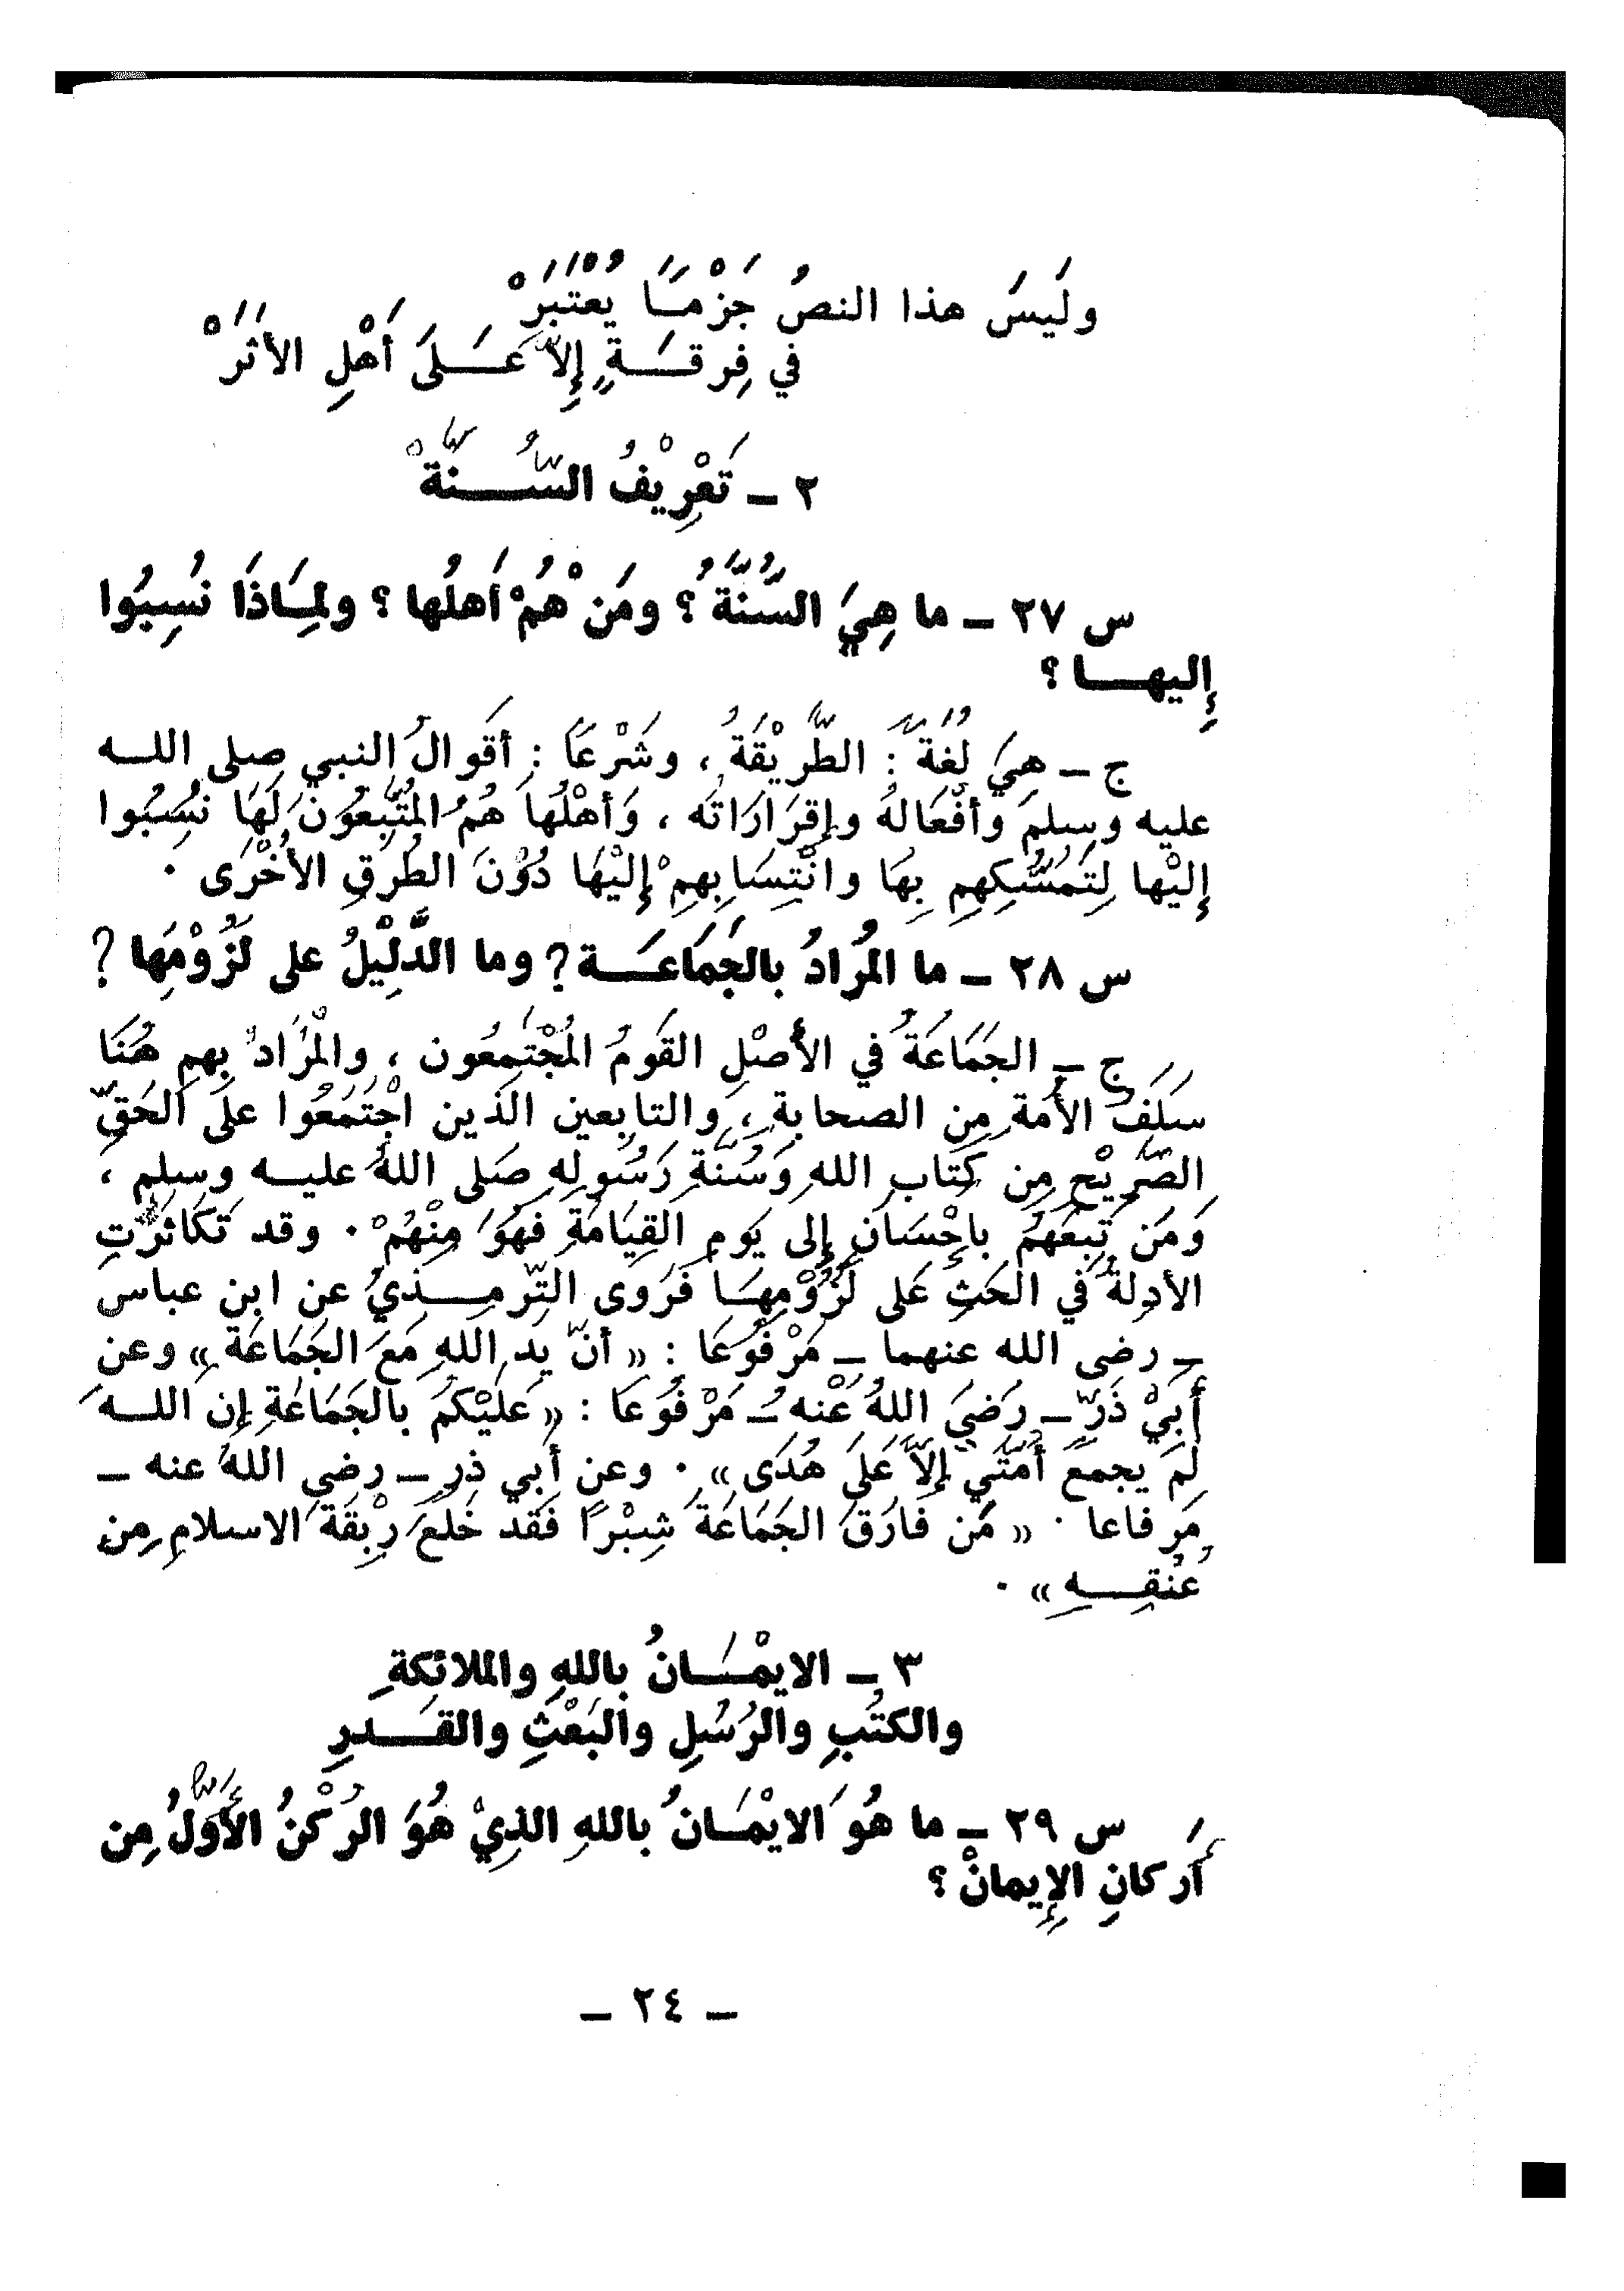 ولَيسَ هذا النصُ جَزْمًا يُعْتَبَرْ
في فِرقَةٍ إِلاّ عَلَى أَهْلِ الأَثَرْ
٢ – تَعْرِيْفُ السُّنَّةْ
س ٢٧ – ما هِيَ السُّنَّةُ ؟ ومَن هُمْ أَهلُها ؟ ولِمَاذَا نُسِبُوا
إِليها ؟
ج – هِيَ لُغَةً : الطَّرِيْقَةُ ، وشَرْعًا : أَقوالُ النبي صلى الله
عليه وسلمَ وَأَفْعَالهُ وإِقرَارَاتُه ، وَأَهْلُهَا هُمُ المُتَّبِعُوَنَ لَهَا نُسُبُوا
إِليْها لِتَمَسُّكِهِم بِهَا وانْتِسَابِهِمْ إِليْهَا دُوْنَ الطُرُقِ الأُخْرَى .
س ٢٨ – ما المُرَادُ بالجَمَاعَة ? وما الدَّلِيْلُ على لُزُوْمِهَا ?
ج – الجَمَاعَةُ في الأَصْلِ القَومُ المُجْتَمِعُون ، والمُرَادُ بِهِم هُنَا
سَلَفُ الأُمة مِن الصحابةِ ، والتابِعين الَذين اجْتَمَعُوا علَى الَحَقِّ
الصَّرِيْحِ مِن كِتاب اللهِ وَسُنَّةِ رَسُولِهِ صَلى اللهُ عليه وسلم ،
وَمَن تَبِعَهُمُ بإِحْسَانٍ إِلى يَومِ القِيَامَةِ فهُوَ مِنْهُمْ . وقد تَكَاثَرْتِ
الأدِلةُ في الحَثِ عَلى لُزُوْمِهَا فَرَوى التِّرمِذيُ عن ابن عباس
– رضى الله عنهما – مَرْفُوْعَا : « أَنّ يد اللهِ مَعَ الجَمَاعَةِ » وعن
أَبِيْ ذَرّ – رَضيَ اللهُ عَنْهُ – مَرْفُوَعًا : « عَلَيْكُمُ بالجَمَاعَةِ إِن اللهَ
لَم يجمعَ أُمَّتِي إِلاَّ عَلَى هُدَى » . وعن أَبي ذرٍ – رضى اللهُ عنه –
مَرفاعا . « مَن فَارَقَ الجَمَاعَةَ شِبْرًا فَقد خَلَعَ رِبْقَةَ الاسلامِ مِن
عُنقِهِ » .
٣ – الايْمَانُ بِاللهِ والملائِكةِ
والكتُبِ والرُسُلِ والبَعْثِ والقَدرِ
س ٢٩ – ما هُوَ الايْمَانُ باللهِ الذِيْ هُوَ الرُكْنُ الأَوَّلُ مِن
أَركانِ الإِيمانْ ؟
– ٢٤ –